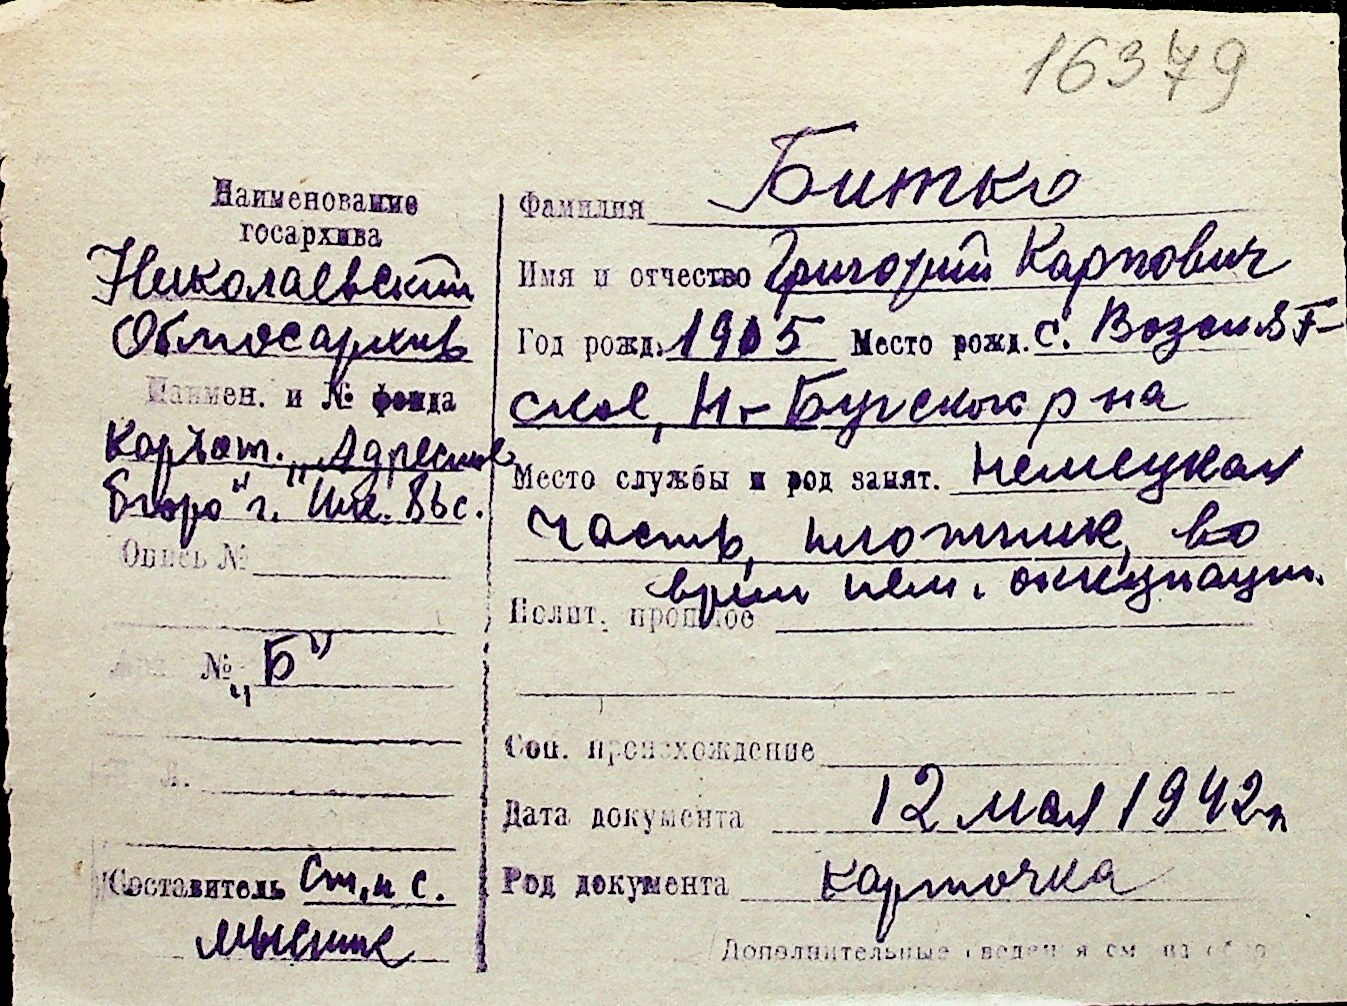 16379
Наименование
госархива
Николаевский
Облгосархив
Наимен. и № фонда
Картот. „Адресное
бюро" г.
Опись №
№ „Б"
Составитель Ст. н с.
Фамилия Битко
Имя и отчество Григорий Карпович
Год рожд. 1905 Место рожд. с. Возсият-
ское, Н-Бугского р на
Место службы и род занят. немецкая
часть, плотник, во
врем нем. оккупации.
Полит. прошлое
Соц. происхождение
Дата документа 12 мая 1942 г
Род документа карточка
Дополнительные сведения см на обор